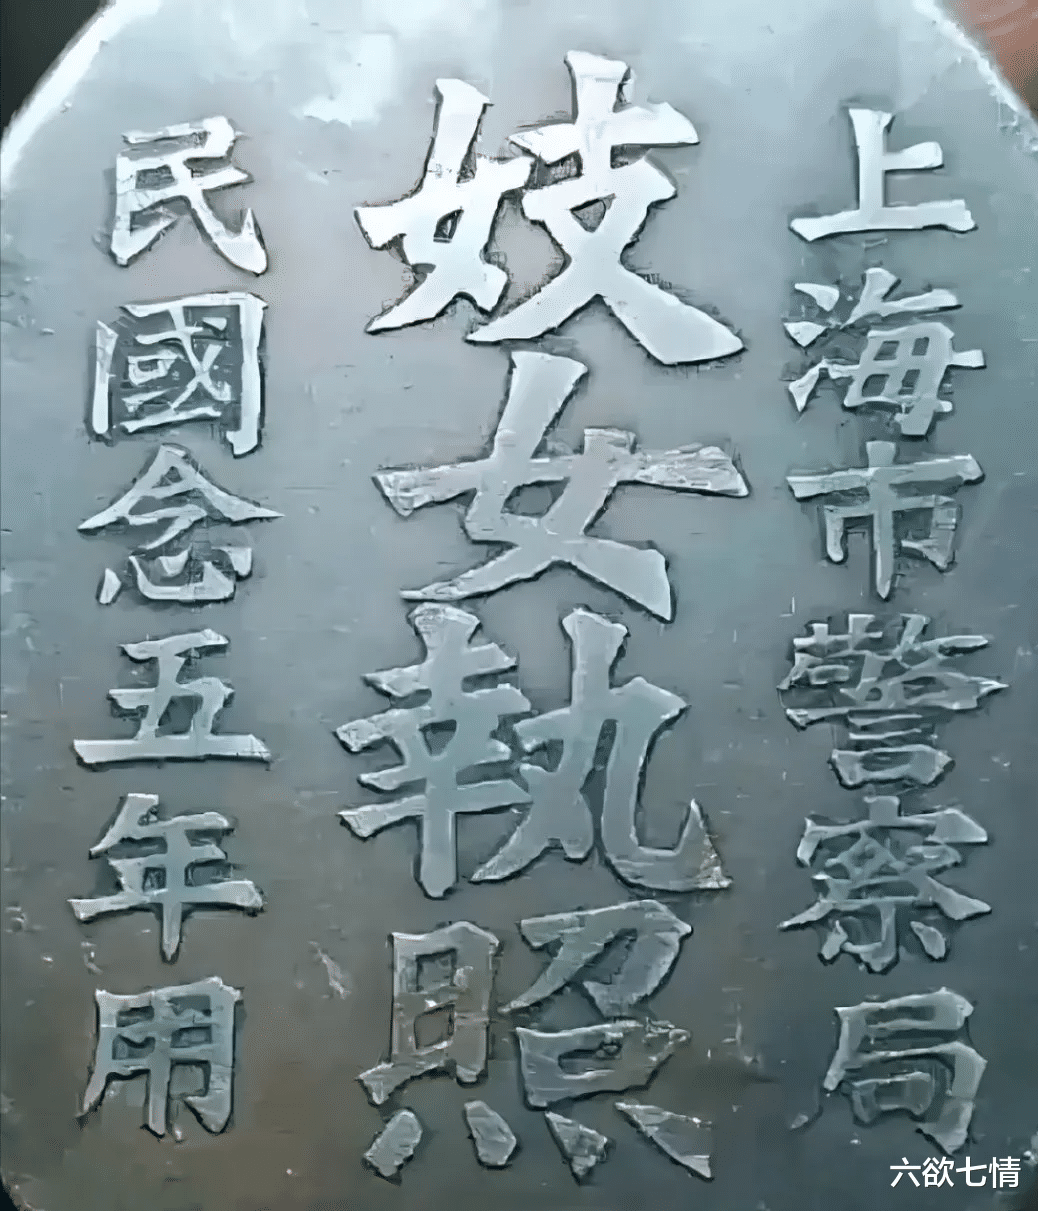 上海市警察局
妓女執照
民國念五年用
六欲七情